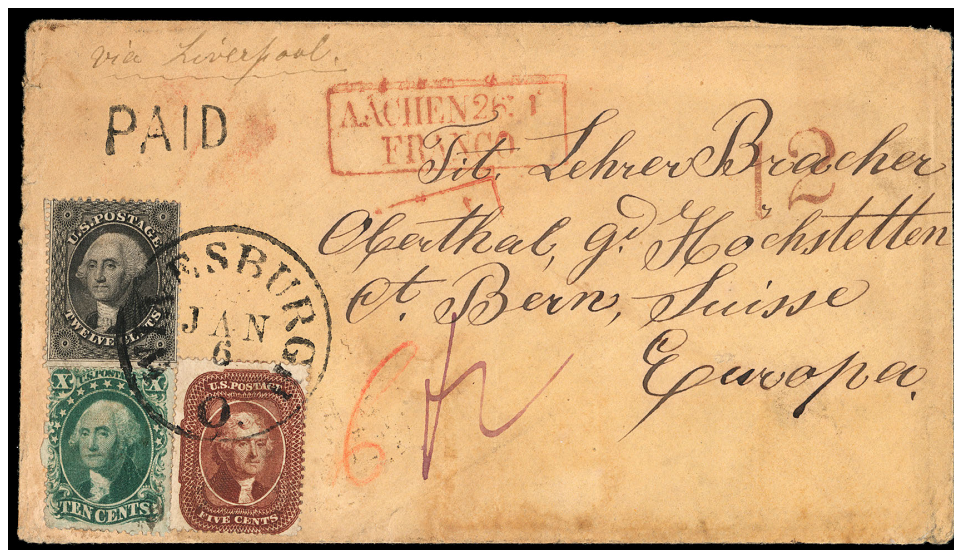 via Liverpool.
PAID
AACHEN 26. 1
FRANCO
12
Tit. Lehrer Bracher
Oberthal, gd. Höchstetten
Ct. Bern, Suisse
Europa.
U.S. POSTAGE
TWELVE CENTS
JAN
6
O.
X X
TEN CENTS
U.S. POSTAGE
FIVE CENTS
6